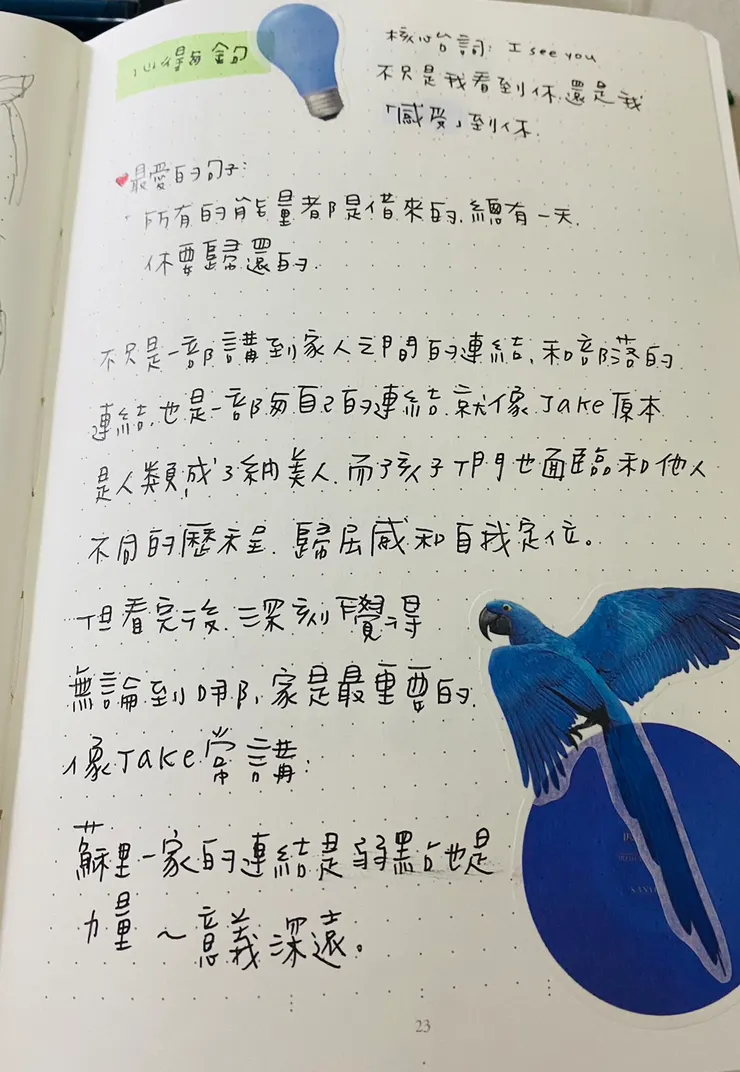 心得與金句
核心台詞: I see you
不只是我看到你.還是我
「感受」到你.
最愛的句子:
所有的能量都是借來的.總有一天.
你要歸還的.
不只是一部講到家人之間的連結.和部落的
連結.也是一部與自己的連結.就像Jake原本
是人類,成了納美人.而孩子們也面臨和他人
不同的歷程.歸屈感和自我定位。
但看完後.深刻覺得
無論到哪,家是最重要的.
像Jake常講:
蘇里一家的連結是弱點也是
力量~意義深遠。
23